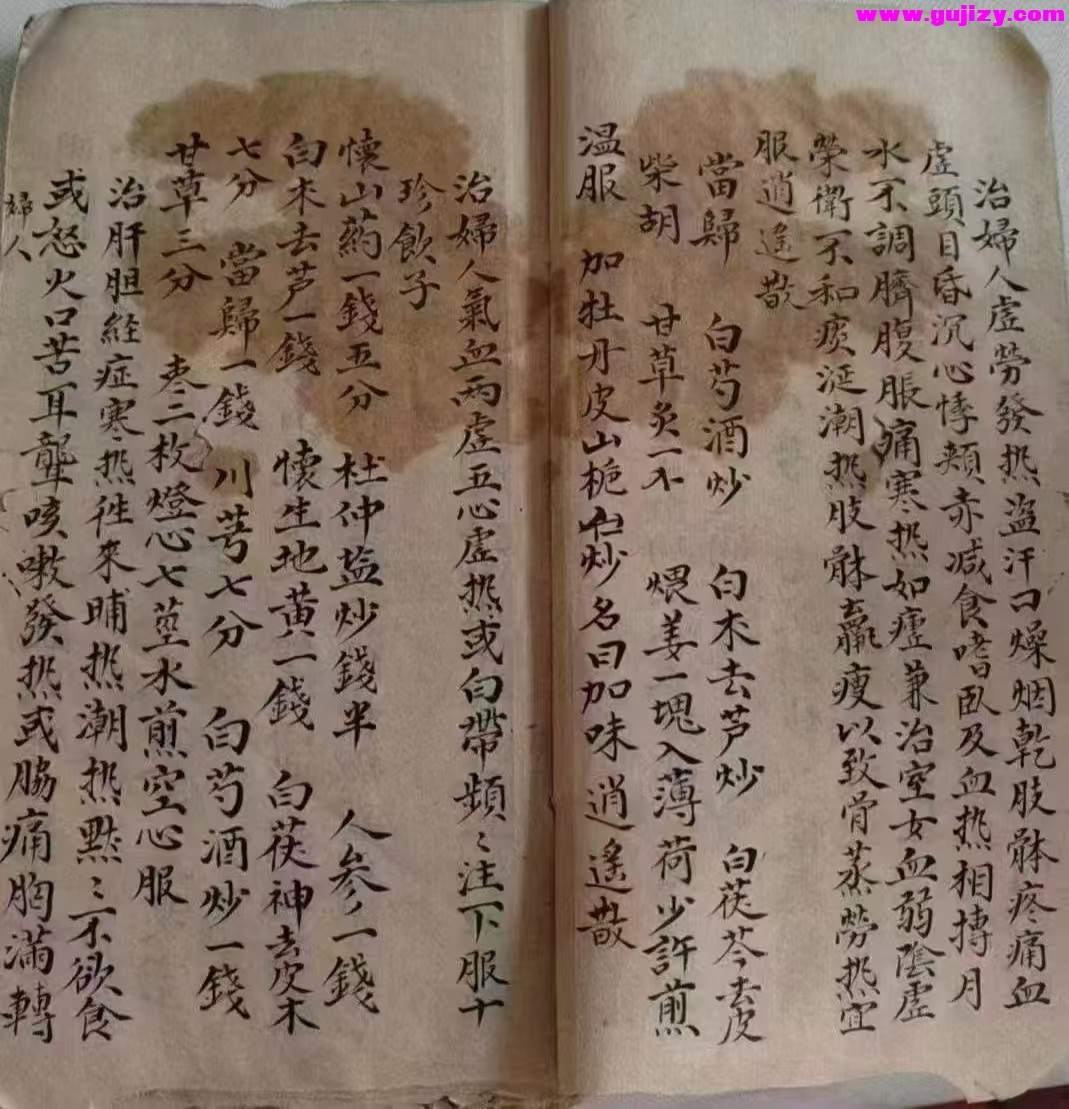 www.gujizy.com
治婦人虛勞發热盗汗口燥烟乾肢躰疼痛血
虛頭目昏沉心悸頰赤减食嗜卧及血热相搏月
水不調臍腹脹痛寒热如瘧兼治室女血弱陰虛
榮衛不和痰涎潮热肢躰羸瘦以致骨蒸勞热宜
服逍遙散
當歸 白芍酒炒 白术去芦炒 白茯苓去皮
柴胡 甘草炙一不 煨姜一塊入薄荷少許煎
温服 加牡丹皮山栀仁炒名曰加味逍遙散
治婦人氣血两虛五心虛热或白帶頻〻注下服十
珍飲子
懷山葯一錢五分 杜仲盐炒錢半 人參一錢
白术去芦一錢 懷生地黄一錢 白茯神去皮木
七分 當歸一錢 川芎七分 白芍酒炒一錢
甘草三分 枣二枚燈心七莖水煎空心服
治肝胆経症寒热徃來晡热潮热點〻不欲食
或怒火口苦耳聾咳嗽發热或脇痛胸滿轉
婦人